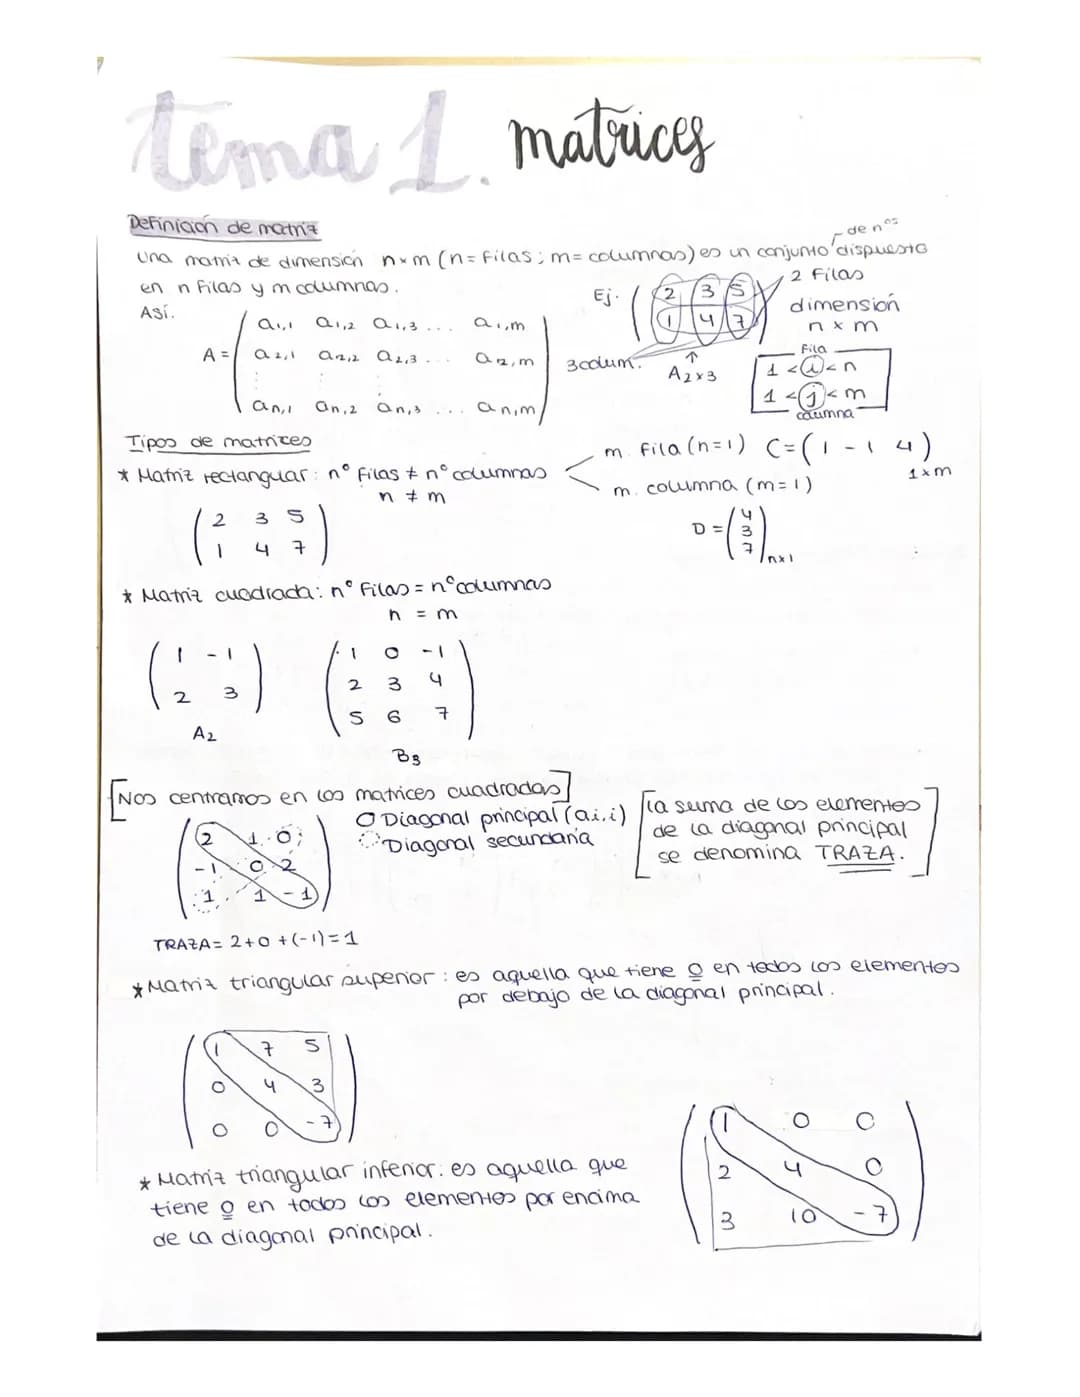 tema 1. matrices
Definición de matriz
de nºs
Una matriz de dimensión n×m (n= filas; m= columnas) es un conjunto dispuesto
en n filas y m columnas.
Así.
A = ( a1,1 a1,2 a1,3 ... a1,m
a2,1 a2,2 a2,3 ... a2,m
⋮ ⋮ ⋮
an,1 an,2 an,3 ... an,m )
Ej. ( 2 3 5
1 4 7 )
2 filas
dimensión
n × m
3 colum.
↑
A2×3
fila
1 < i < n
1 < j < m
columna
Tipos de matrices
* Matriz rectangular: nº filas ≠ nº columnas
n ≠ m
m. fila (n=1) C = ( 1 -1 4 )
1×m
m. columna (m=1)
D = ( 4
3
7 ) n×1
( 2 3 5
1 4 7 )
* Matriz cuadrada: nº filas = nº columnas
n = m
( 1 -1
2 3 )
A2
( 1 0 -1
2 3 4
5 6 7 )
B3
[Nos centramos en las matrices cuadradas]
Diagonal principal (ai,i)
Diagonal secundaria
[la suma de los elementos
de la diagonal principal
se denomina TRAZA.]
( 2 1 0
-1 0 2
1 1 -1 )
TRAZA= 2+0+(-1)=1
* Matriz triangular superior: es aquella que tiene 0 en todos los elementos
por debajo de la diagonal principal.
( 1 7 5
0 4 3
0 0 -7 )
* Matriz triangular inferior: es aquella que
tiene 0 en todos los elementos por encima
de la diagonal principal.
( 1 0 0
2 4 0
3 10 -7 )